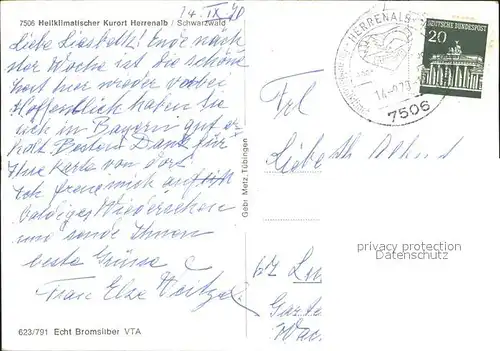 14. IX. 70
7506 Heilklimatischer Kurort Herrenalb / Schwarzwald
Liebe Liesbeth! Ende näch
ster Woche ist die schöne
Zeit hier wieder vorbei
Hoffentlich haben Sie
sich in Bayern gut er
holt Besten Dank für
Ihre Karte von dort
Ich freue mich auf
baldiges Wiedersehen
und sende Ihnen
beste Grüsse
Frau Else
623/791 Echt Bromsilber VTA
Gebr. Metz, Tübingen
HERRENALB
14.-9.70
7506
DEUTSCHE BUNDESPOST
20
Frl
privacy protection
Datenschutz